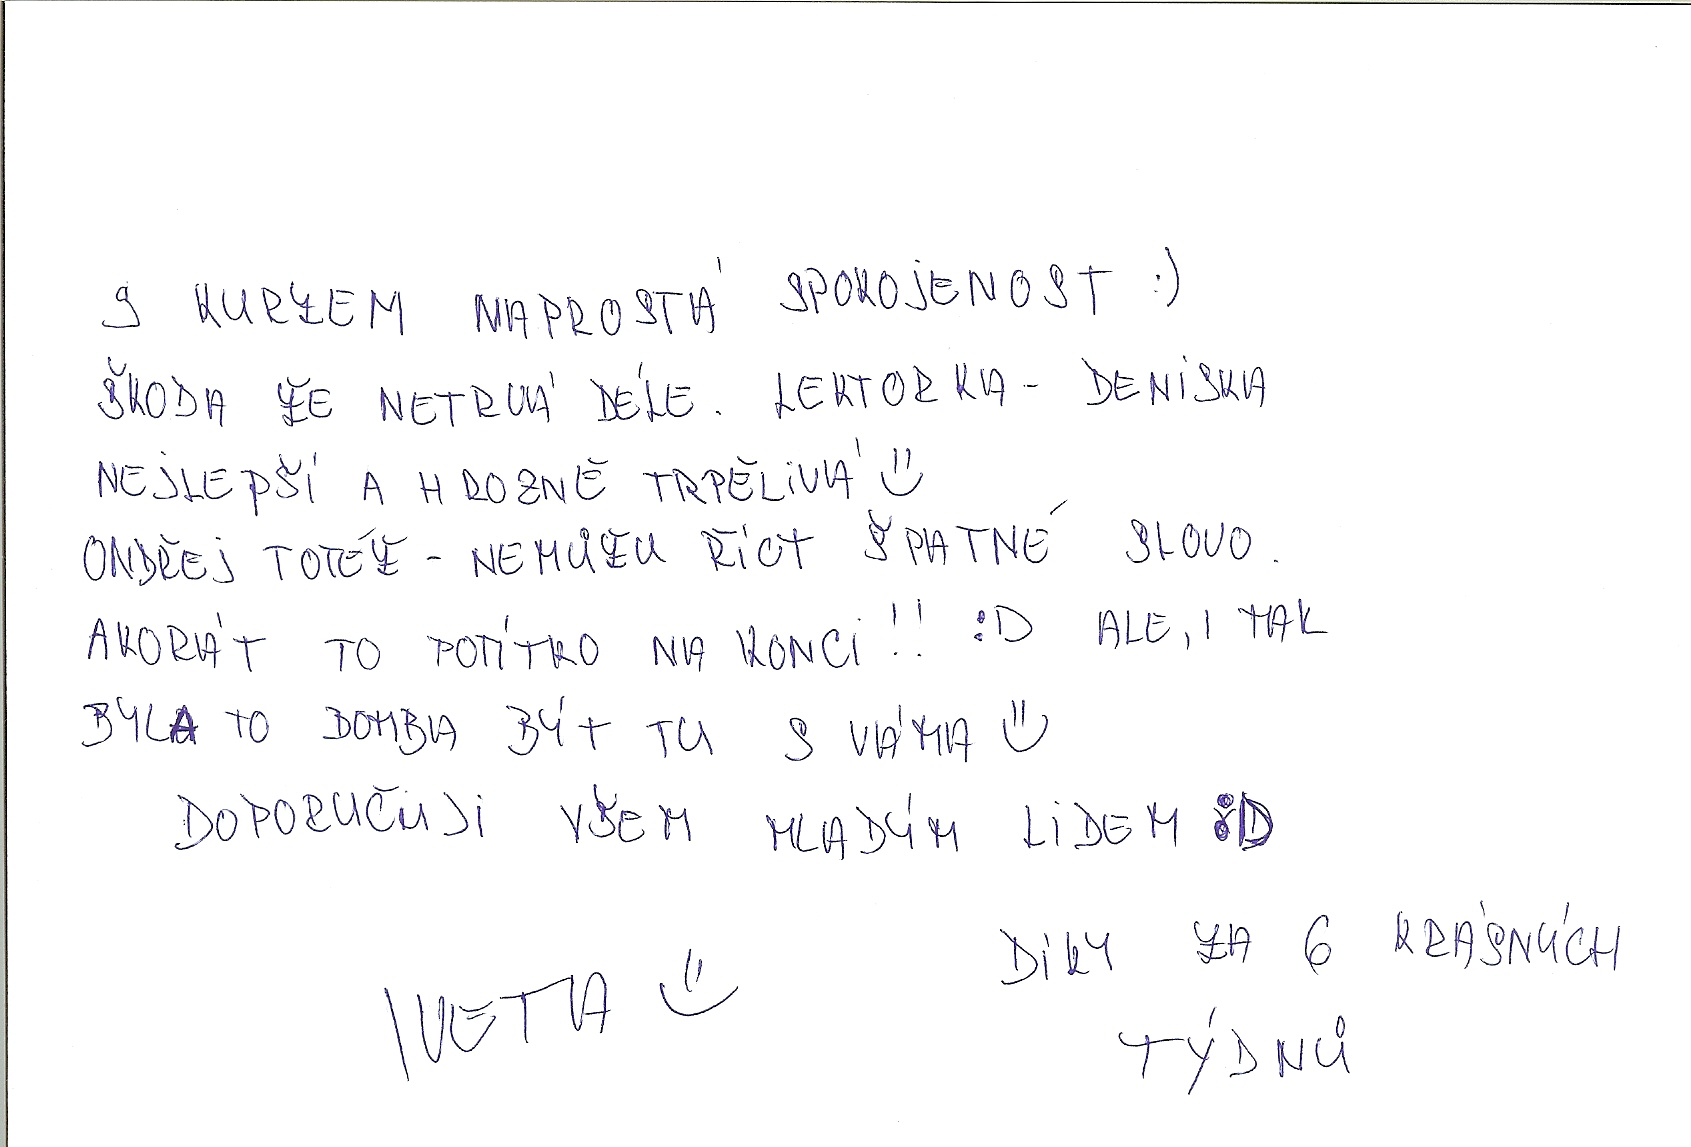 S KURZEM NAPROSTÁ SPOKOJENOST :)
ŠKODA ŽE NETRVÁ DÉLE. LEKTORKA - DENISKA
NEJLEPŠÍ A HROZNĚ TRPĚLIVÁ :)
ONDŘEJ TOTÉŽ - NEMŮŽU ŘÍCT ŠPATNÉ SLOVO.
AKORÁT TO POTÍTKO NA KONCI!! :D ALE, I TAK
BYLA TO BOMBA BÝT TU S VÁMA :)
DOPORUČUJI VŠEM MLADÝM LIDEM :D
DÍKY ZA 6 KRÁSNÝCH
TÝDNŮ
IVETA :)